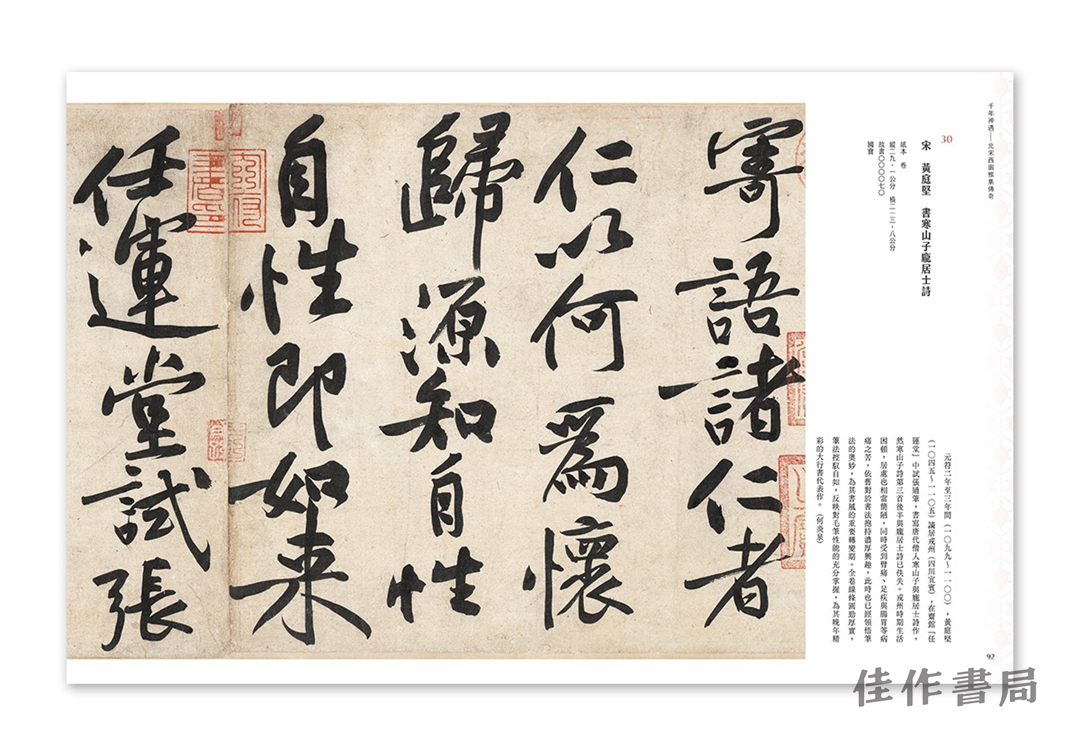 千年神遇——北宋西園雅集傳奇
30
宋 黃庭堅 書寒山子龐居士詩
紙本 卷
縱二九.一公分 橫二一三.八公分
故書〇〇〇〇七〇
國寶
元符二年至三年間(一〇九九~一一〇〇),黃庭堅
(一〇四五~一一〇五)謫居戎州(四川宜賓),在齋館「任
運堂」中試張通筆,書寫唐代僧人寒山子與龐居士詩作,
然寒山子詩第三首後半與龐居士詩已佚失。戎州時期生活
困頓,居處也相當簡陋,同時受到臂痛、足疾與腸胃等病
痛之苦,依舊對於書法抱持濃厚興趣,此時也已經領悟筆
法的奧妙,為其書風的重要轉變期。全卷線條圓勁厚實,
筆法控馭自如,反映對毛筆性能的充分掌握,為其晚年精
彩的大行書代表作。(何炎泉)
寄語諸仁者
仁以何為懷
歸源知自性
自性即如来
任運堂試張
92
佳作書局